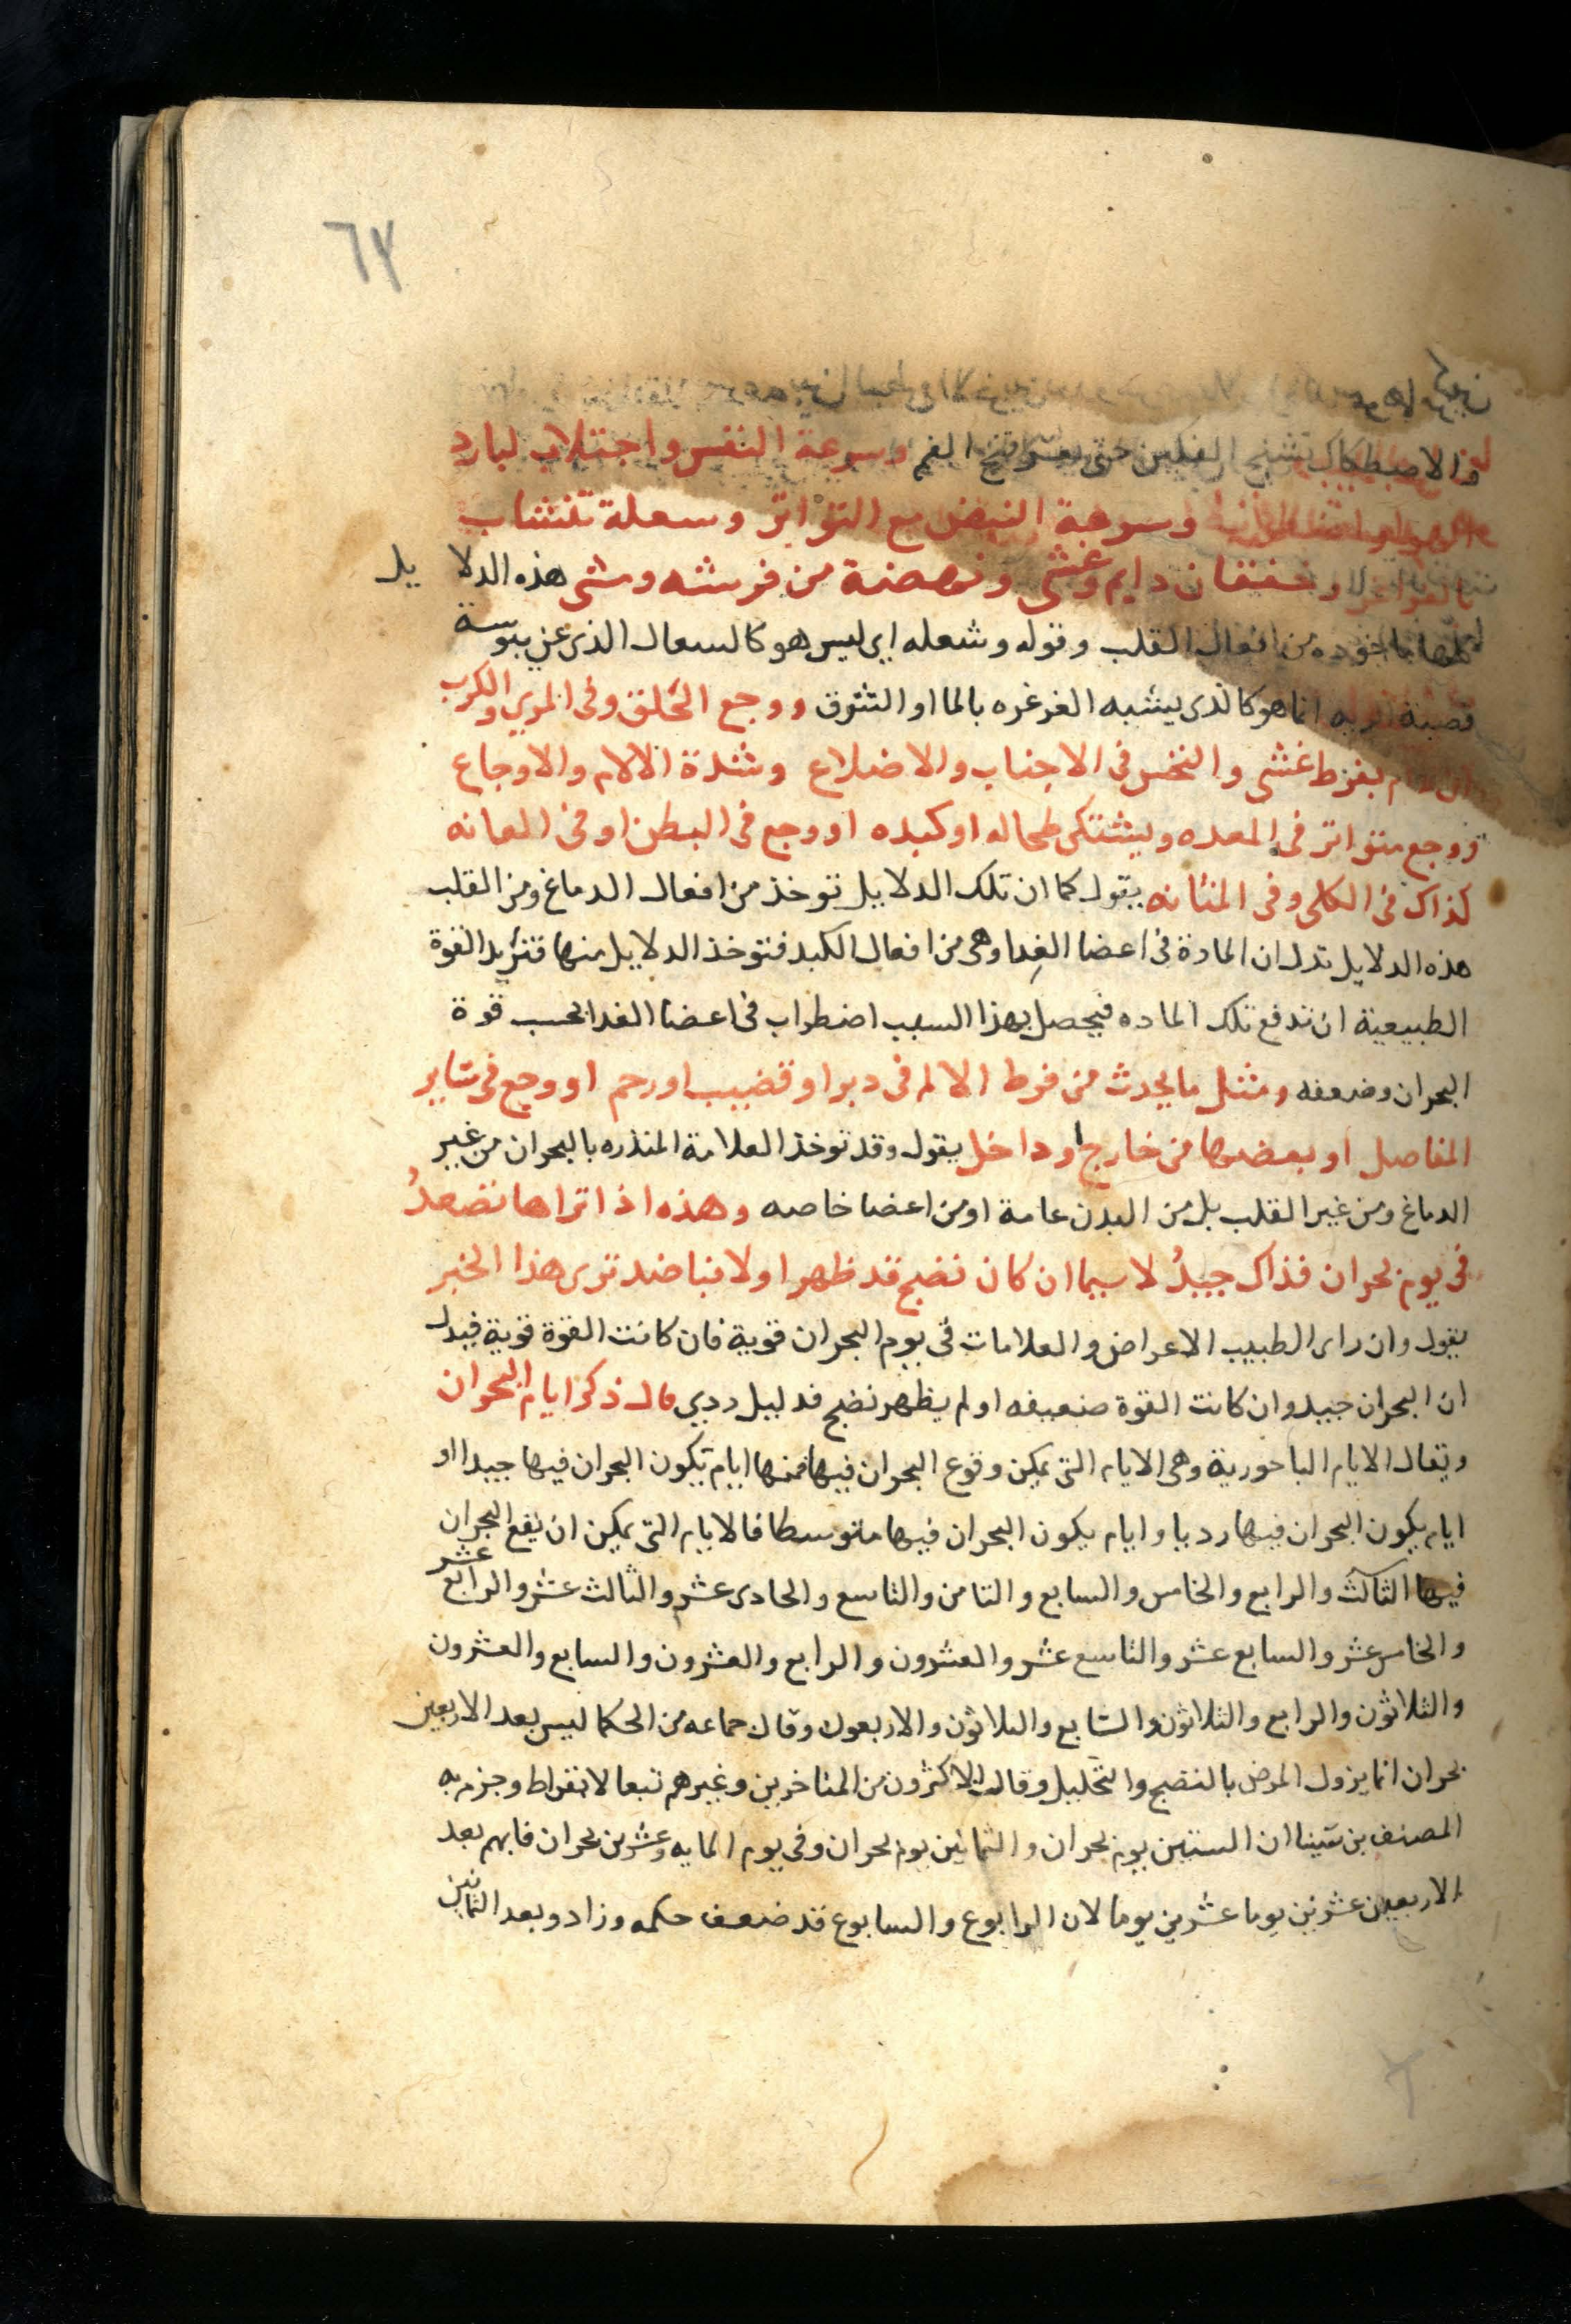 ٦٧
والاصطكاك تشنج الفكين حتى يعسر فتح الفم وسرعة النفس واجتلاب لبارد
وسرعة النبض مع التواتر وسعلة تنشاب
وخفقان دايم وغشي ونهضة من فرشه ومشي هذه الدلايل
كلها ماخوذه من افعال القلب وقوله وشعله اي ليس هو كالسعال الذي عن يبوسة
قصبة الريه انما هو كالذي يشبه الغرغره بالما او التشوق ووجع الحلق وفي المري والكرب
بفرط غشي والنخس في الاجناب والاضلاع وشدة الالام والاوجاع
ووجع متواتر في المعده ويشتكي طحاله او كبده او وجع في البطن او في المعانه
كذاك في الكلي وفي المثانه يقول كما ان تلك الدلايل توخذ من افعال الدماغ ومن القلب
هذه الدلايل تدل ان المادة في اعضا الغدا وهي من افعال الكبد فتوخذ الدلايل منها فتريد القوة
الطبيعية ان تدفع تلك الماده فيحصل بهذا السبب اضطراب في اعضا الغدا بحسب قوة
البحران وضعفه ومثل ما يحدث من فرط الالم في دبر او قضيب او رحم او وجع في ساير
المفاصل او بعضها من خارج او داخل يقول وقد توخذ العلامة المنذره بالبحران من غير
الدماغ ومن غير القلب بل من البدن عامة او من اعضا خاصه وهذه اذا تراها تصعد
في يوم بحران فذاك جيد لا سيما ان كان نضج قد ظهر اولا فبا ضد ترى هذا الخبر
يقول وان راى الطبيب الاعراض والعلامات في يوم البحران قوية فان كانت القوة قوية فيدل
ان البحران جيد وان كانت القوة ضعيفه او لم يظهر نضج فدليل ردي قال ذكر ايام البحران
ويقال الايام الباحورية وهي الايام التي يمكن وقوع البحران فيها فمنها ايام يكون البحران فيها جيدا او
ايام يكون البحران فيها رديا وايام يكون البحران فيها متوسطا فالايام التي يمكن ان يقع البحران
فيها الثالث والرابع والخامس والسابع والثامن والتاسع والحادى عشر والثالث عشر والرابع عشر
والخامس عشر والسابع عشر والتاسع عشر والعشرون والرابع والعشرون والسابع والعشرون
والثلاثون والرابع والثلاثون والسابع والثلاثون والاربعون وقال جماعه من الحكما ليس بعد الاربعين
بحران انما يزول المرض بالنضج والتحليل وقال الاكثرون من المتاخرين وغيرهم تبعا لابقراط وجزم به
المصنف بن سينا ان الستين يوم بحران والثمانين يوم بحران وفي يوم المايه وعشرين بحران فانهم بعد
الاربعين عشرين يوما عشرين يوما لان الرابوع والسابوع قد ضعف حكمه وزاد وبعد الثمانين